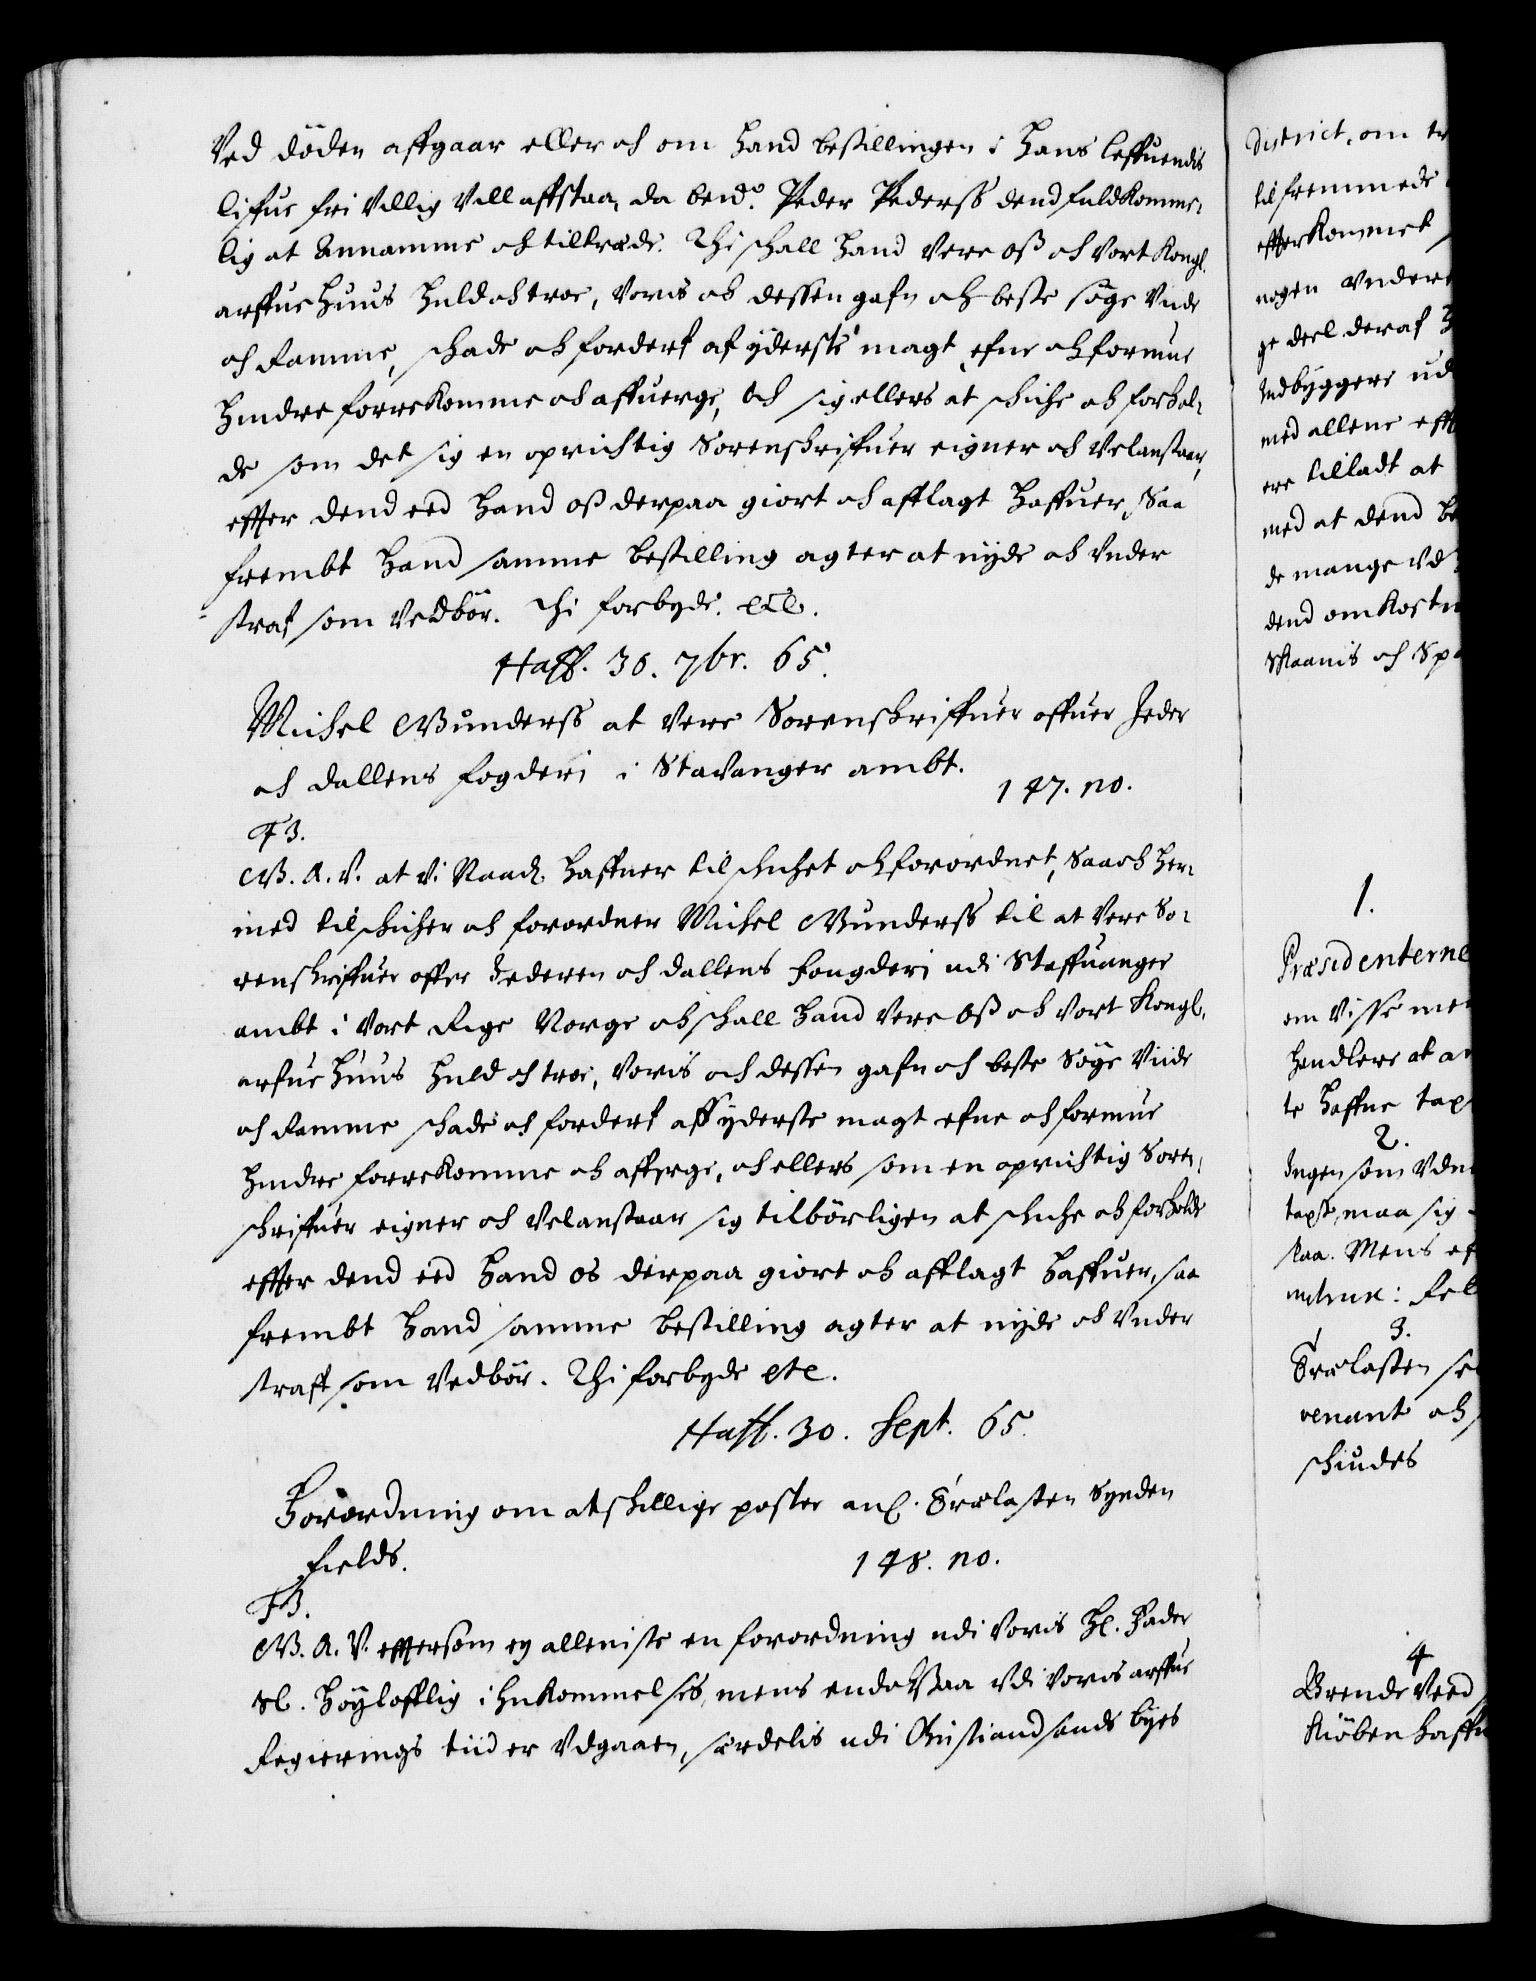 Ved döden affgaar eller och om hand bestillingen i hans leffuendis
lifue fri villig vill affstaa, da bemd. Peder Pederss dend fuldkomme-
lig at annamme och tiltræde. Thi schall hand vere oß och vort Kongl.
arffue huus huld och troe, voris och dessen gafn och beste söge vide
och ramme, schade och forderf af yderste magt, efne och formue
hindre forrekomme och affuerge, och sig ellers at schiche och forhol-
de som det sig en oprichtig Sorenskriffuer eigner och velanstaar,
effter dend eed hand oß derpaa giort och afflagt haffuer, Saa
frembt hand samme bestilling agter at nyde och under
straf som vedbör. Thi forbyde. etc.
Haff. 30. 7br. 65.
Michel Gunderss at vere Sorenskriffuer offuer Jeder
och dallens fogderi i Stavanger ambt.
147. no.
F3.
G. A. V. at vi Naadl. haffuer tilschichet och forordnet, Saa och her-
med tilschicher och forordner Michel Gunderss til at vere So-
renskriffuer offer Jederen och dallens fougderi udi Staffuanger
ambt i vort Rige Norge och schall hand vere oß och vort Kongl.
arfue huus huld och troe, voris och dessen gafn och beste Söge vide
och ramme schade och forderf aff yderste magt efne och formue
hindre forrekomme och afferge, och ellers som en oprichtig Soren-
schriffuer eigner och velanstaar sig tilbörligen at schiche och forholde
effter dend eed hand os derpaa giort och afflagt haffuer, saa
frembt hand samme bestilling agter at nyde och under
straff som vedbör. Thi forbyde etc.
Haff. 30. Sept. 65.
Forordning om atskillige poster anl. Trælasten Synden
fields.
148. no.
F3.
G. A. V. effter som ey alleniste en forordning udi voris hl. fader
Sl. höylofflig ihukommelses, mens endochsaa udi voris arffue
Regierings tiid er udgaaen, særdelis udi Christiandsands byes
District. om tr
til fremmede
effterkommet
nogen under
ge deel deraf h
Indbyggere ud
med allene eff
ere tilladt at
med at dend be
de mange ud
dend omkostn
Skaanis och Sp
1.
Præsidenterne
om visse me
handlere at a
te haffue tax
2.
Ingen som uden
taxst, maa sig
staa. Mens ef
3.
Trælasten se
venant och
schiudes
4
Brende veed
Kiöbenhaffn